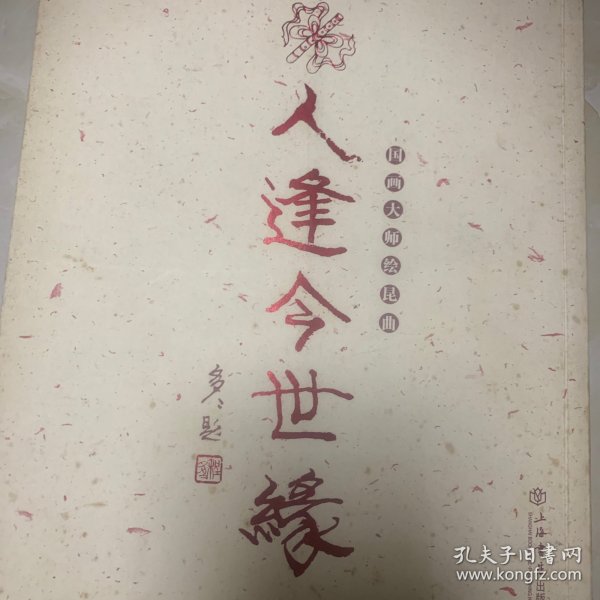 国画大师绘昆曲
人逢今世緣
多多题
上海
孔夫子旧书网
www.kongfz.com